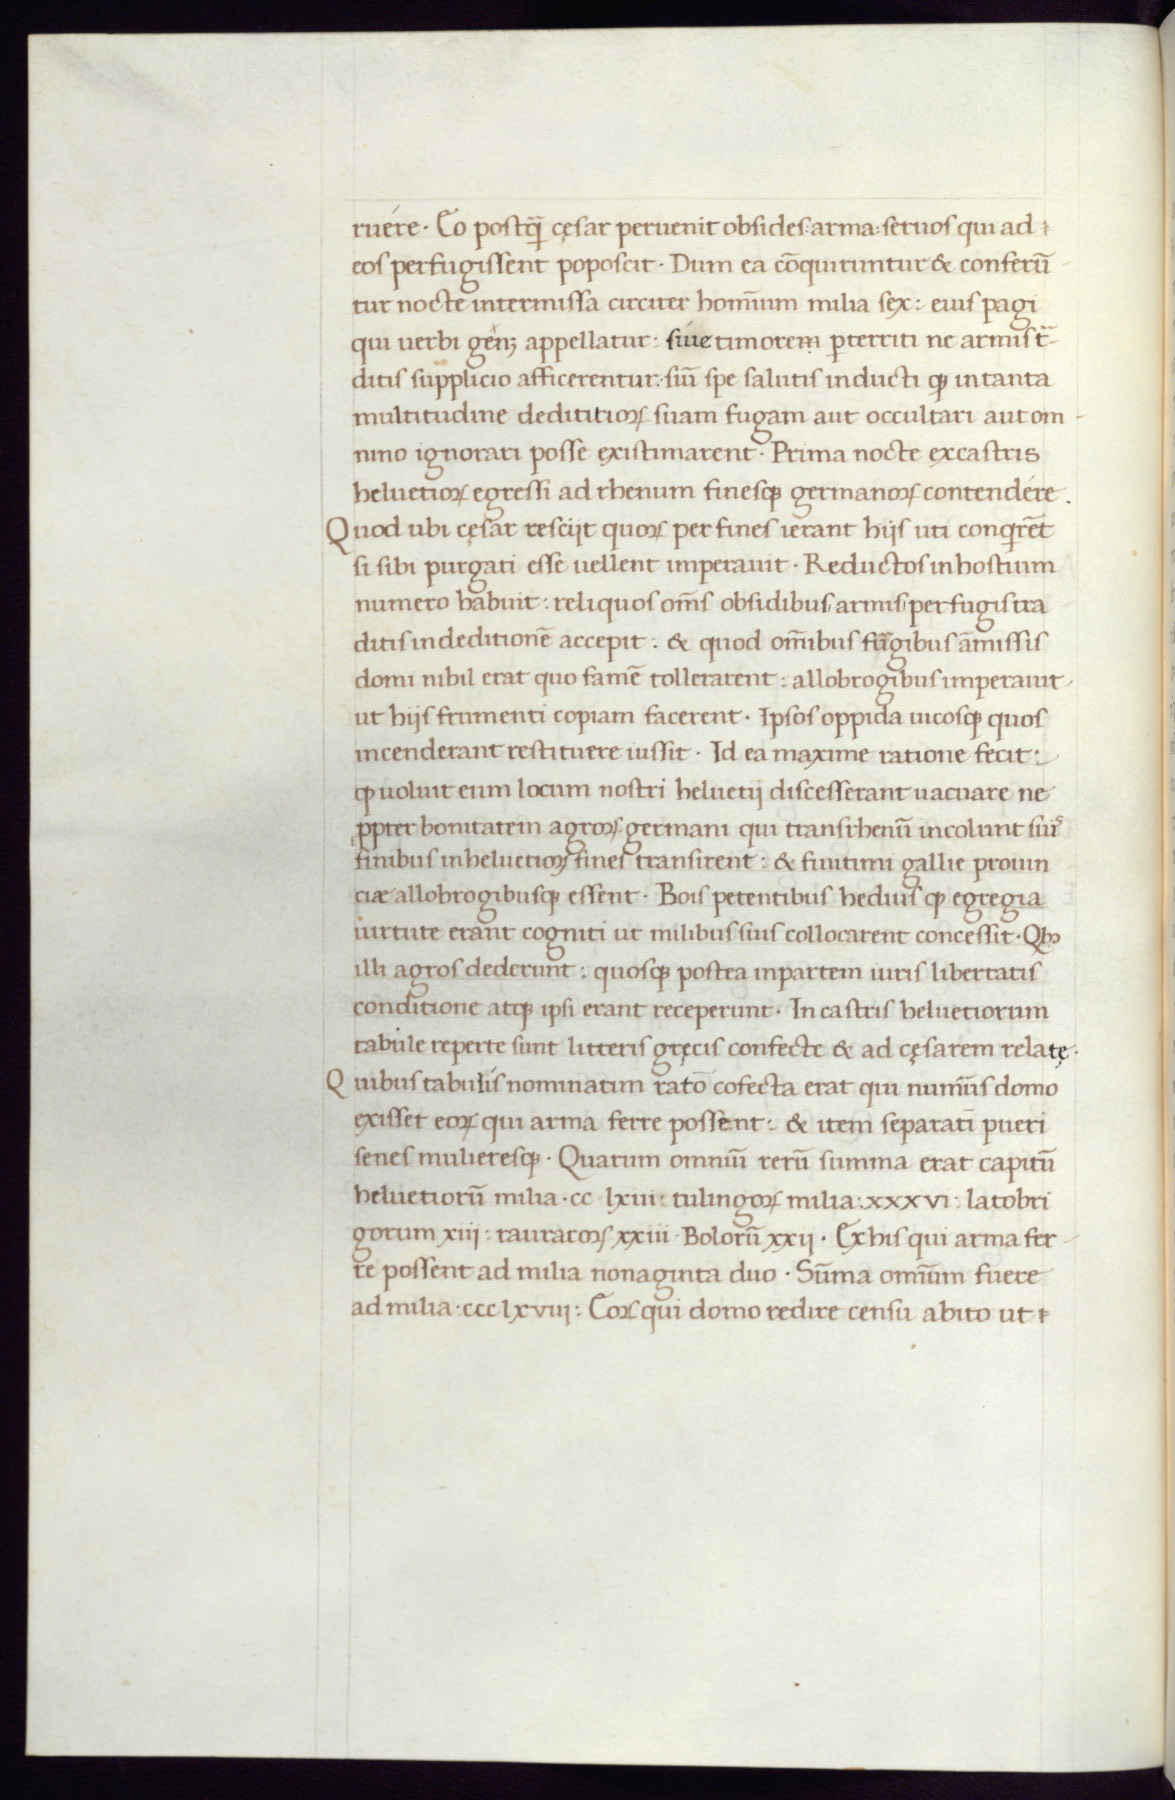 ruére. Eo postq̃ cęsar peruenit obsides: arma: seruos qui ad
eos perfugissent poposcit. Dum ea cõquiruntur & conferũ
tur nocte intermissa circiter homĩum milia sex: eius pagi
qui uerbi genꝫ appellatur: siue timorem ꝑterriti ne armis t̃
ditis supplicio afficerentur: siũ spe salutis inducti ꝙ in tanta
multitudine dedititioꝝ suam fugam aut occultari aut om
nino ignorari posse existimarent. Prima nocte ex castris
heluetioꝝ egressi ad rhenum finesqꝫ germanoꝝ contendére.
Quod ubi cęsar resciit quoꝝ per fines ierant hijs uti conqͥrẽt
si sibi purgati esse uellent imperauit. Reductos in hostium
numero habuit: reliquos om̃s obsidibus, armis, perfugis tra
ditis in deditionẽ accepit: & quod om̃ibus frugibus ãmissis
domi nihil erat quo famẽ tollerarent: allobrogibus imperauit
ut hijs frumenti copiam facerent. Ipsos oppida uicosqꝫ quos
incenderant restituere iussit. Id ea maxime ratione fecit:
ꝙ uoluit eum locum nostri heluetij discesserant uacuare ne
ꝓpter bonitatem agroꝝ germani qui trans rhenũ incolunt suiˢ
finibus in heluetioꝝ fines transirent: & finitimi gallie prouin
ciæ allobrogibusqꝫ essent. Bois petentibus heduis ꝙ egregia
uirtute erant cogniti ut milibus suis collocarent concessit. Qbꝫ
illi agros dederunt: quosqꝫ postea in partem iuris libertatis
conditione atqꝫ ipsi erant receperunt. In castris heluetiorum
tabule reperte sunt litteris gręcis confecte & ad cęsarem relatę.
Quibus tabulis nominatim ratõ cofecta erat qui num̃us domo
exisset eoꝝ qui arma ferre possent: & item separatĩ pueri
senes mulieresqꝫ. Quarum omniũ rerũ summa erat capitũ
heluetiorũ milia. cc lxiii: tulingoꝝ milia: xxxvi: latobri
gorum xiij: rauracoꝝ xxiii. Boiorũ xxij. Ex his qui arma fer
re possent ad milia nonaginta duo. Sũma omĩum fuere
ad milia. ccc lxviii: Eoꝝ qui domo redire censu abito ut